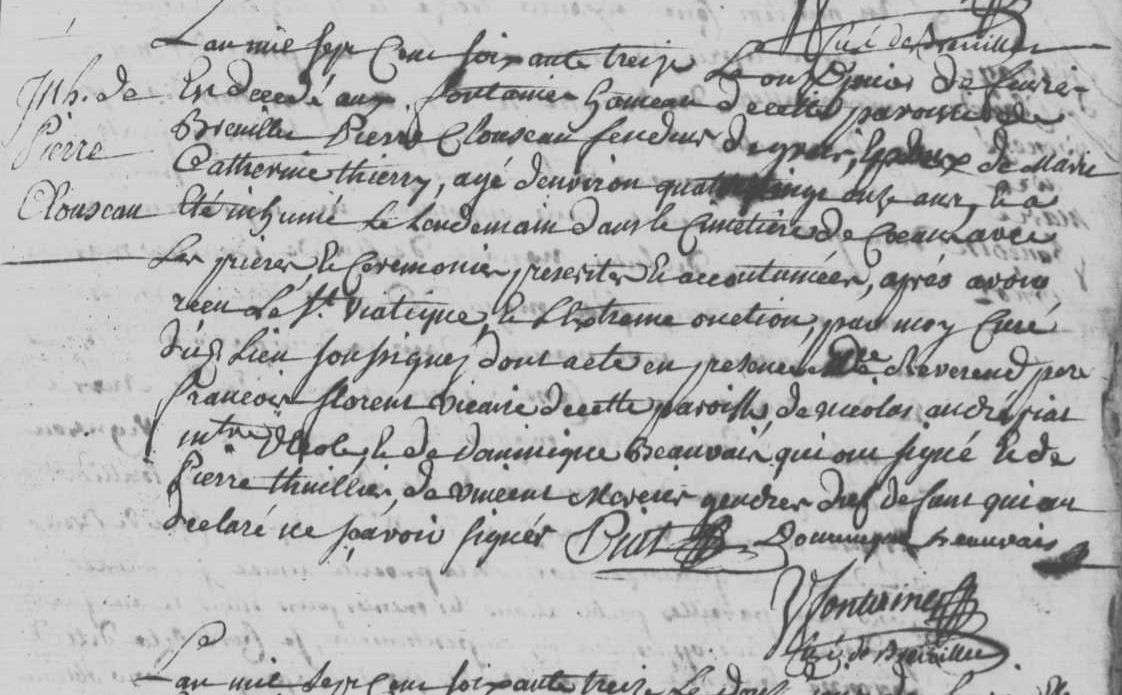 Curé de Breuillet
L'an mil sept Cent soixante treize Le onze Janvier de fievre
Inh. de
Pierre
Clouseau
Est decedé aux fontaines hameau de cette paroisse de
Breuillet Pierre Clouseau fendeur de grais, Epoux de Marie
Catherine thierry, agé d'environ quatrevingt onze ans, Et a
Eté inhumé Le Lendemain dans le Cimetiere de Ceans avec
Les prieres Et Ceremonies prescrites Et accoutumées, aprés avoir
recu Le St. Viatique, Et L'Extreme onction, par moy Curé
dud. Lieu soussigné, dont acte en presence de Reverend pere
francois florent vicaire de cette paroisse, de nicolas andré piat
mtre d'Ecole, Et de Dominique Beauvais qui ont signé Et de
Pierre thuillier, de vincent Mercier gendres dud. defunt qui ont
declaré ne sçavoir signer Piat Dominique beauvais
Fontaine
Curé de Breuillet
L'an mil sept Cent soixante treize Le douze